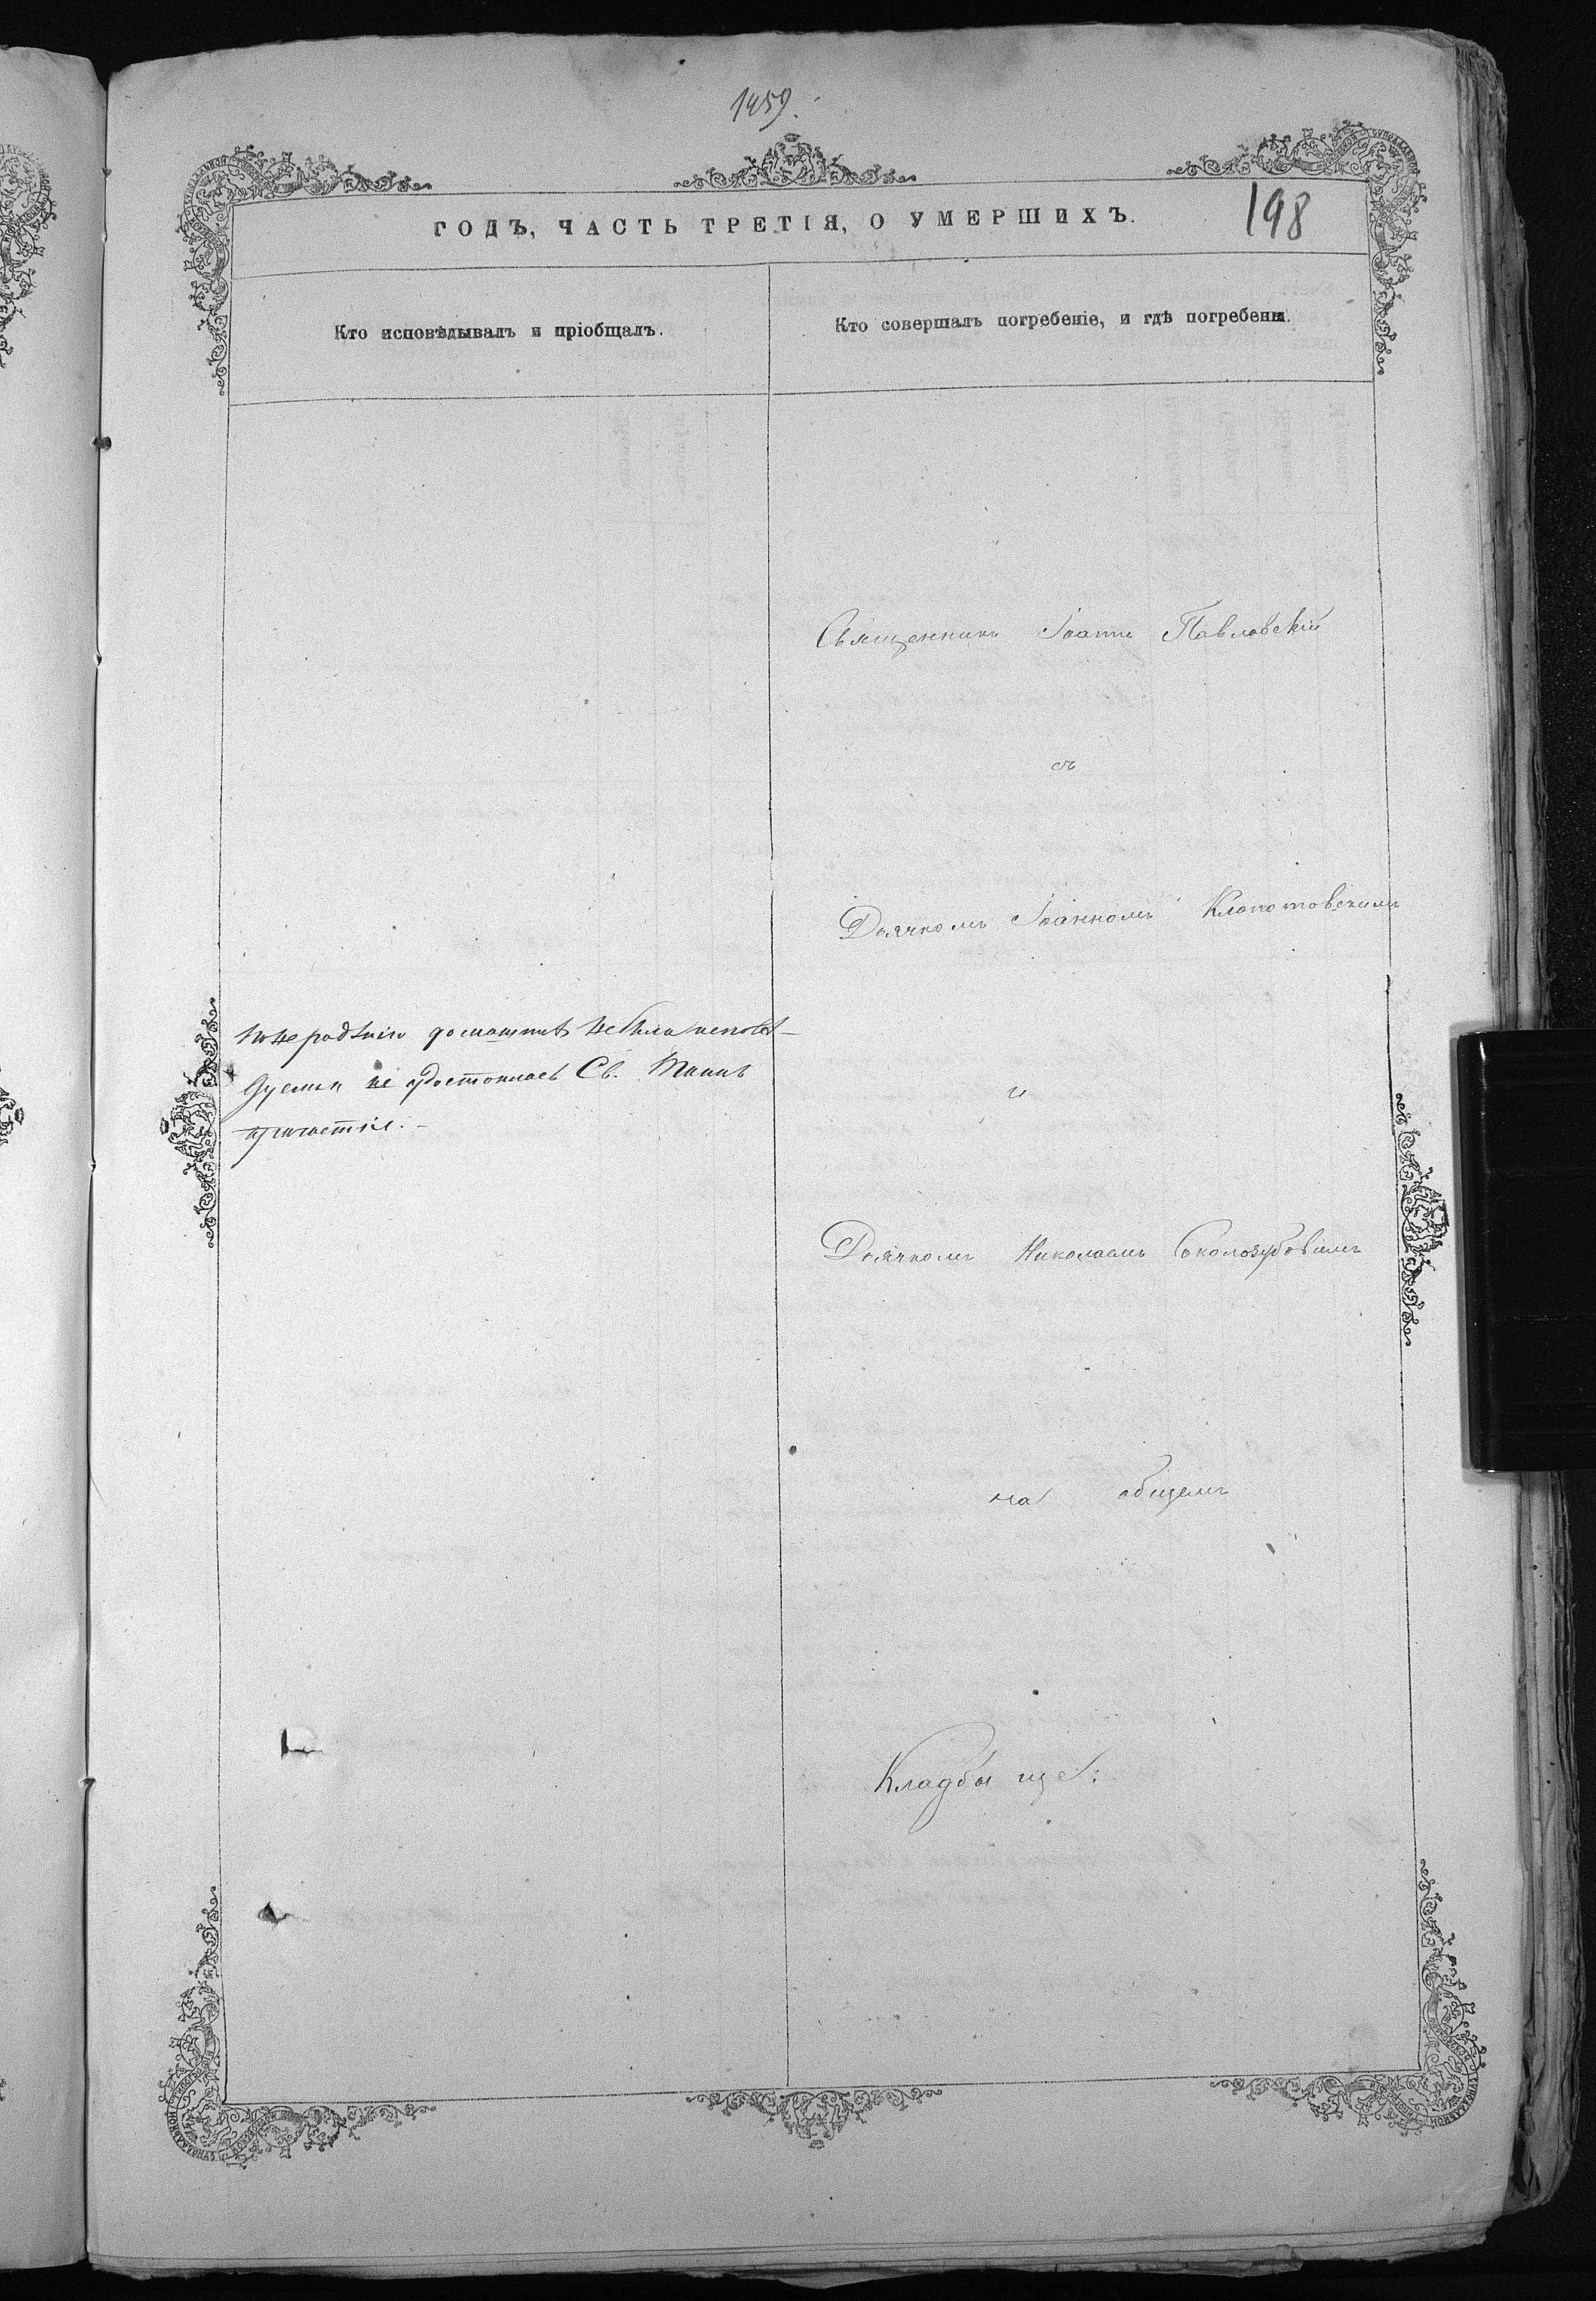 1459.
198
ГОДЪ, ЧАСТЬ ТРЕТІЯ, О УМЕРШИХЪ.
Кто исповѣдывалъ и пріобщалъ.
Кто совершалъ погребеніе, и гдѣ погребены.
Священникъ Іоаннъ Павловскій
съ
Дьячкомъ Іоанномъ Клопотовскимъ
понерадѣнію домашнихъ небыла исповѣ-
дуема и не удостоилась Св. Таинъ
причастія.-
и
Дьячкомъ Николаемъ Соколозубовымъ
на общемъ
Кладбищѣ: